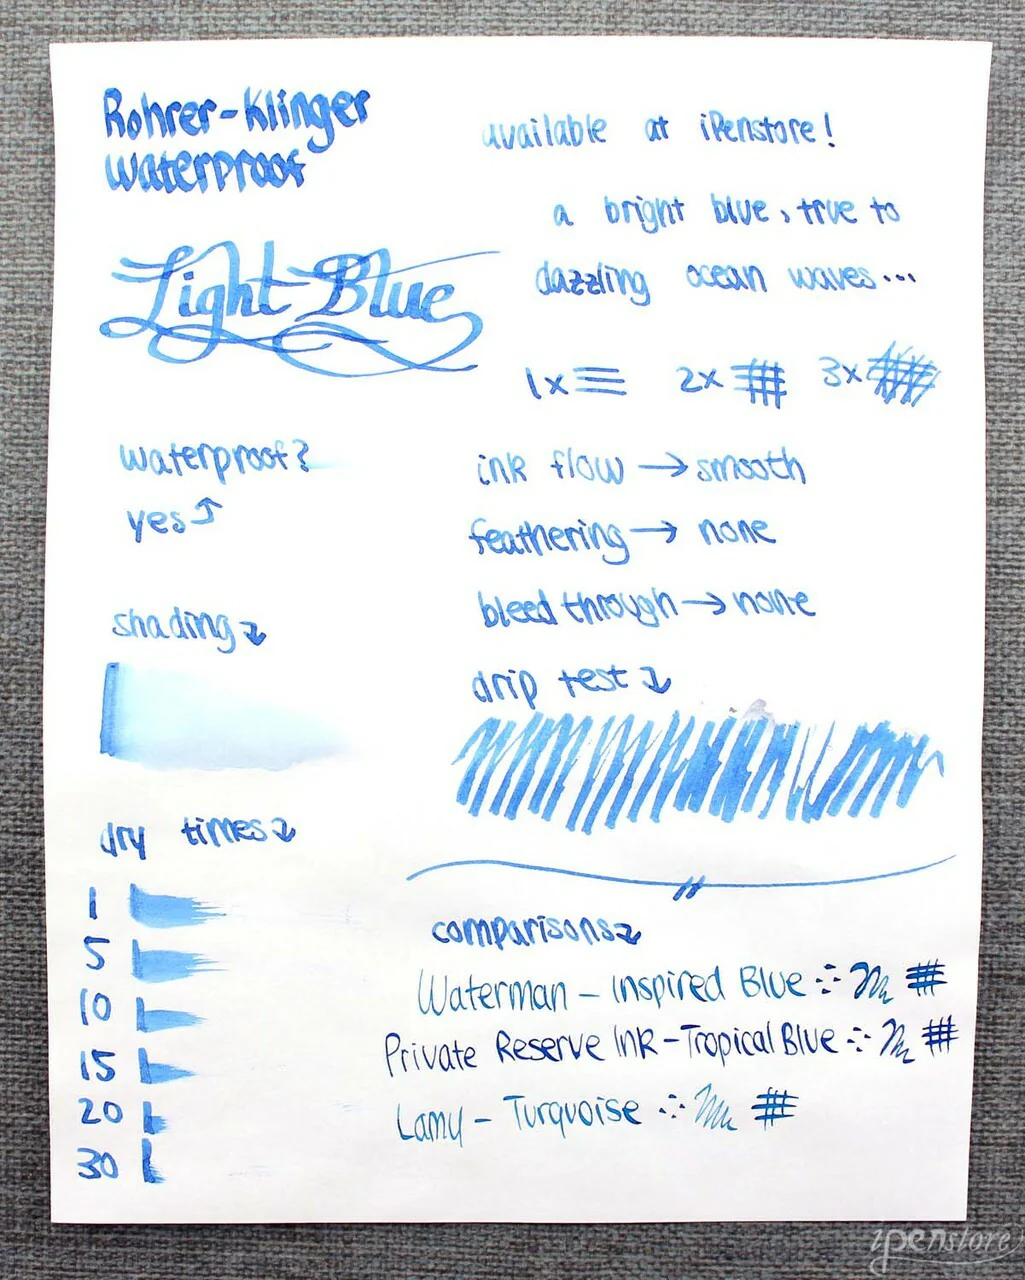 Rohrer-Klinger
Waterproof
Light Blue
available at iPenstore!
a bright blue, true to
dazzling ocean waves...
1x 2x 3x
waterproof?
yes
ink flow → smooth
feathering → none
bleed through → none
shading
drip test
dry times
1
5
10
15
20
30
comparisons
Waterman - Inspired Blue
Private Reserve Ink - Tropical Blue
Lamy - Turquoise
ipenstore